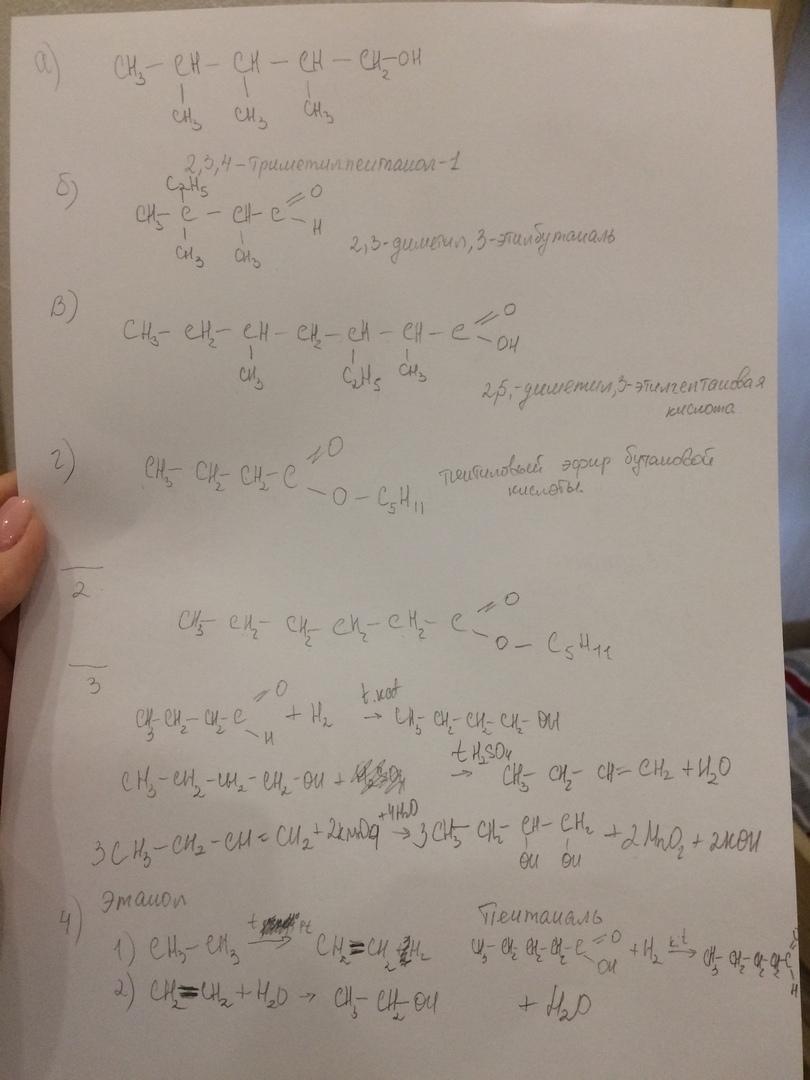 а) CH3 – CH – CH – CH – CH2–OH
CH3 CH3 CH3
2,3,4-триметилпентанол-1
C2H5
б) CH3 – C – CH – C =O
– H
CH3 CH3
2,3-диметил,3-этилбутаналь
в) CH3 – CH2 – CH – CH2 – CH – CH – C =O
– OH
CH3 C2H5 CH3
2,5,-диметил,3-этилгептановая
кислота
г) CH3 – CH2 – CH2 – C =O
– O – C5H11
пентиловый эфир бутановой
кислоты.
2
CH3 – CH2 – CH2 – CH2 – CH2 – C =O
– O – C5H11
3
CH3–CH2–CH2–C =O – H + H2 t.kat → CH3–CH2–CH2–CH2–OH
CH3–CH2–CH2–CH2–OH + t H2SO4 → CH3–CH2–CH=CH2 + H2O
3CH3–CH2–CH=CH2+2KMnO4 +4H2O → 3CH3–CH2–CH–CH2 + 2MnO2 + 2KOH
OH OH
4) Этанол
1) CH3–CH3 t Pt → CH2=CH2 H2
2) CH2=CH2 + H2O → CH3–CH2–OH
Пентаналь
CH3–CH2–CH2–CH2–C =O – OH + H2 k t → CH3–CH2–CH2–CH2–C =O – H
+ H2O